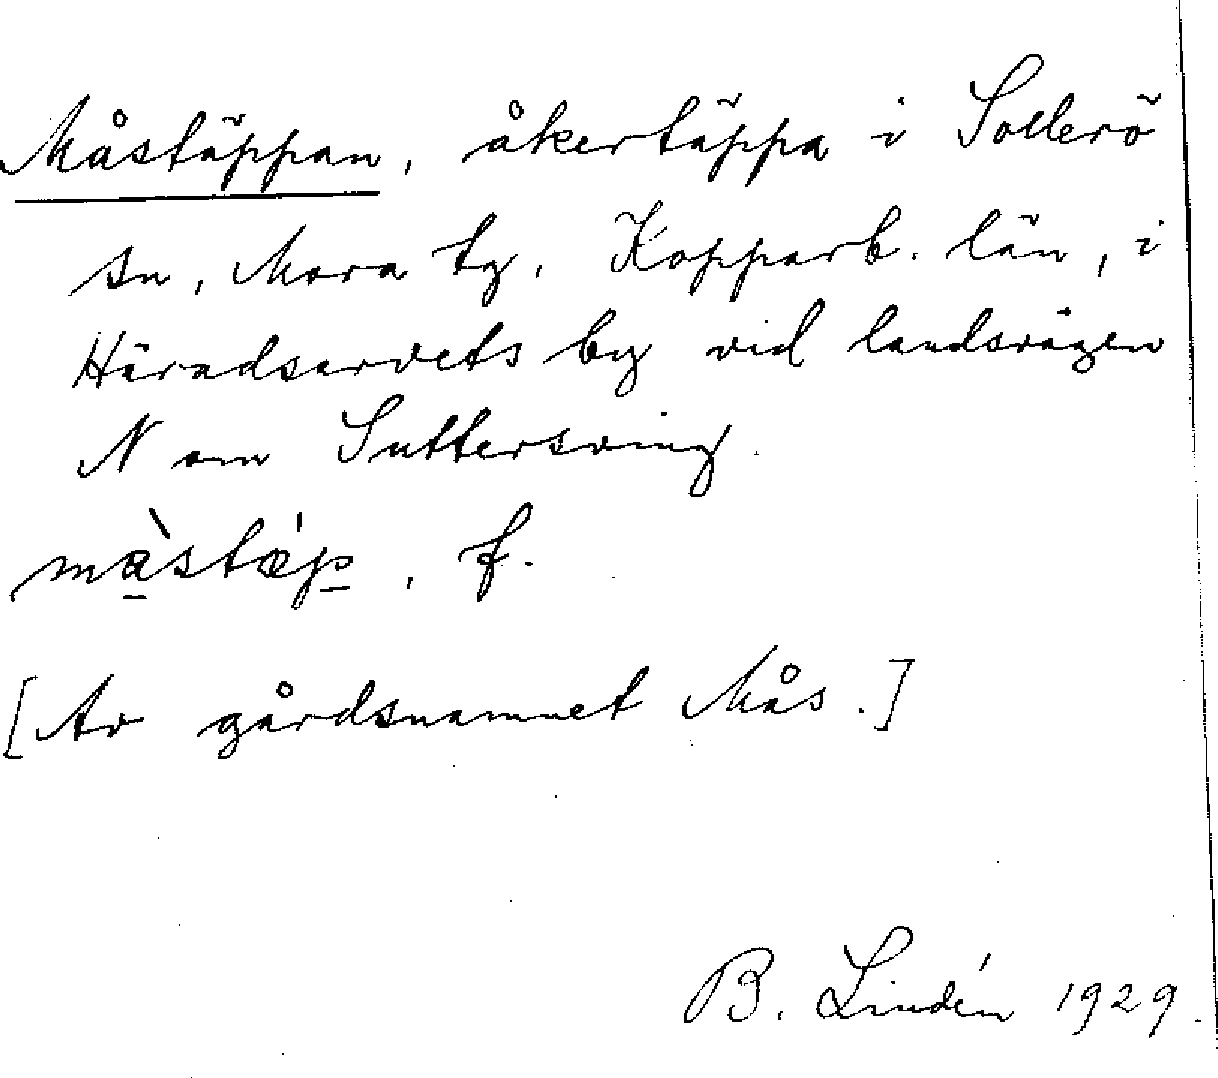 Måstäppan, åkertäppa i Sollerö
sn, Mora tg, Kopparb. län, i
Häradsarvets by vid landsvägen
N om Suttersving.
mà̱stæ̀p̱, f.
[Av gårdsnamnet Mås.]
B. Lindén 1929.